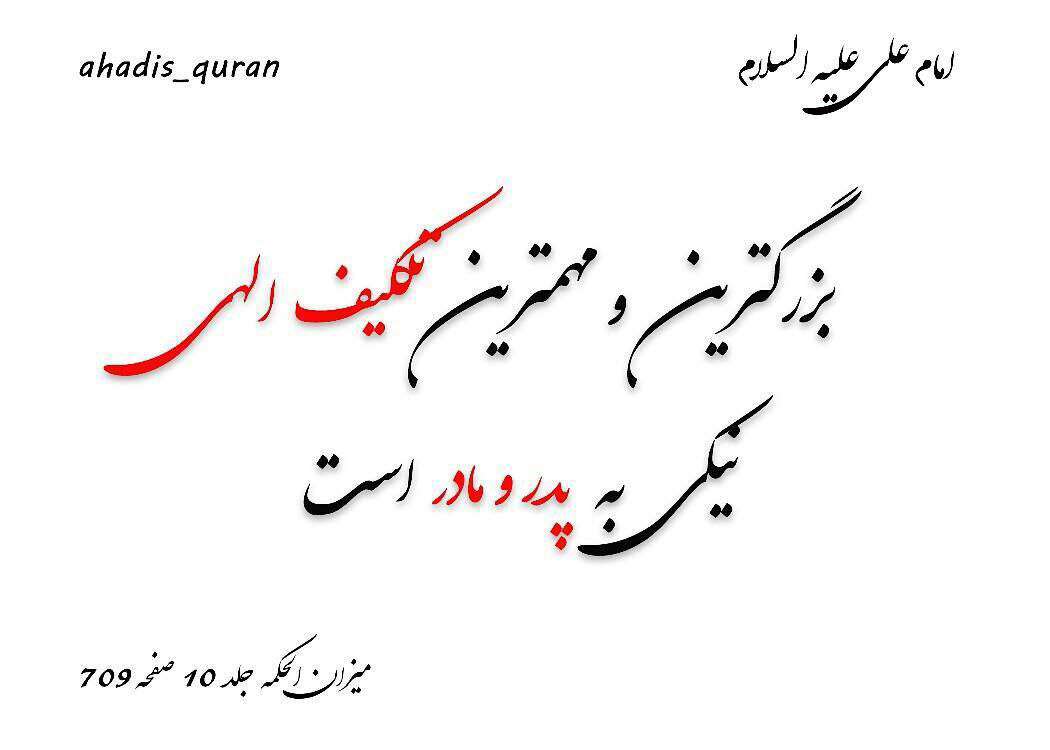 امام علی علیه السلام
ahadis_quran
بزرگترین و مهمترین تکلیف الهی
نیکی به پدر و مادر است
میزان الحکمه جلد 10 صفحه 709